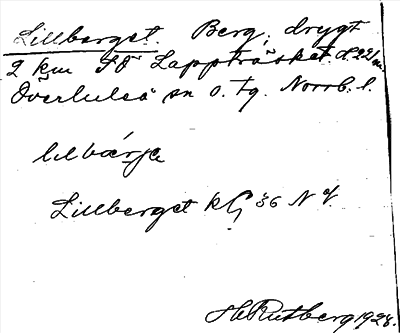 Lillberget. Berg, drygt
2 km SO Lappträsket
Överluleå sn o. tg. Norrb. l.
lilbærjə
Lillberget kG 36 N
H Rutberg 1928.